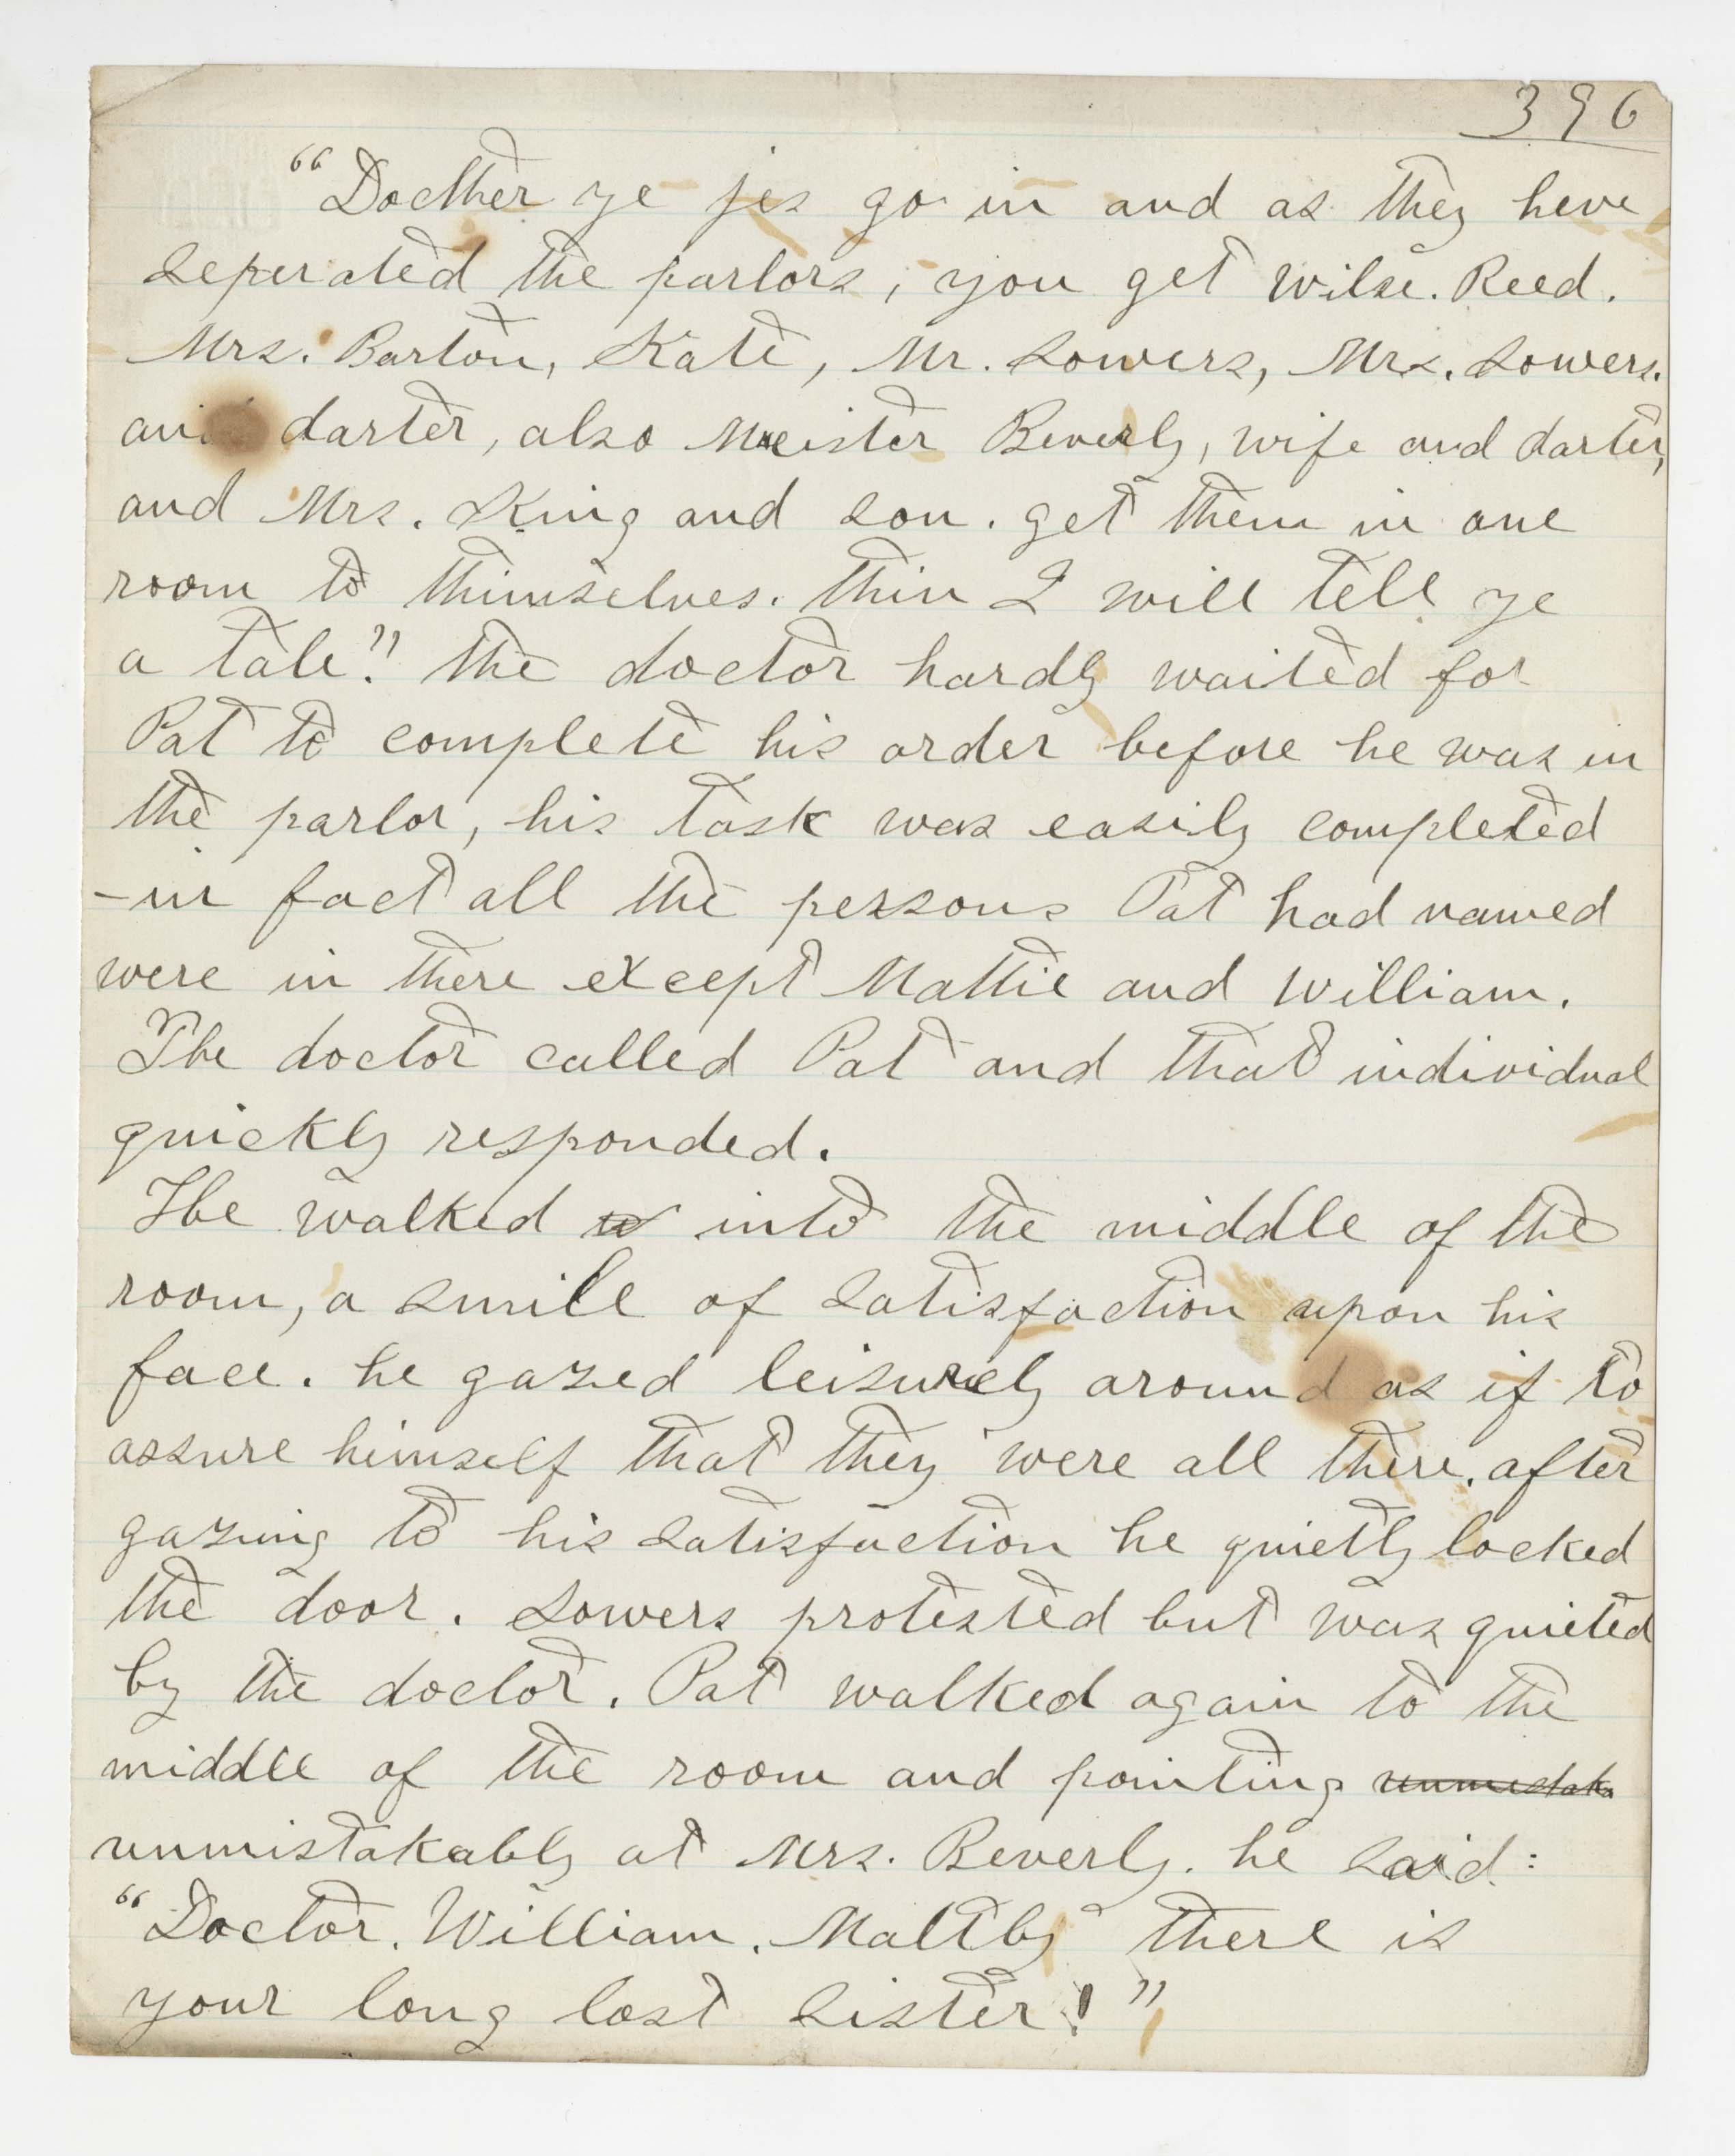 396
"Docther ye jes go in and as they heve
seperated the parlors, you get Wilse. Reed.
Mrs. Barton, Kate, Mr. Sowers, Mrs. Sowers.
and darter, also Meister Beverly, wife and darter,
and Mrs. King and son. get them in one
room to thimselves. thin I will tell ye
a tale." the doctor hardly waited for
Pat to complete his order before he was in
the parlor, his task was easily completed
-in fact all the persons Pat had named
were in there except Mattie and William.
The doctor called Pat and that individual
quickly responded.
He walked into the middle of the
room, a smile of satisfaction upon his
face. he gazed leisurely around as if to
assure himself that they were all there. after
gazing to his satisfaction he quietly locked
the door. Sowers protested but was quieted
by the doctor. Pat walked again to the
middle of the room and pointing unmistak
unmistakably at Mrs. Beverly. he said:
"Doctor. William. Maltby there is
your long lost sister!"